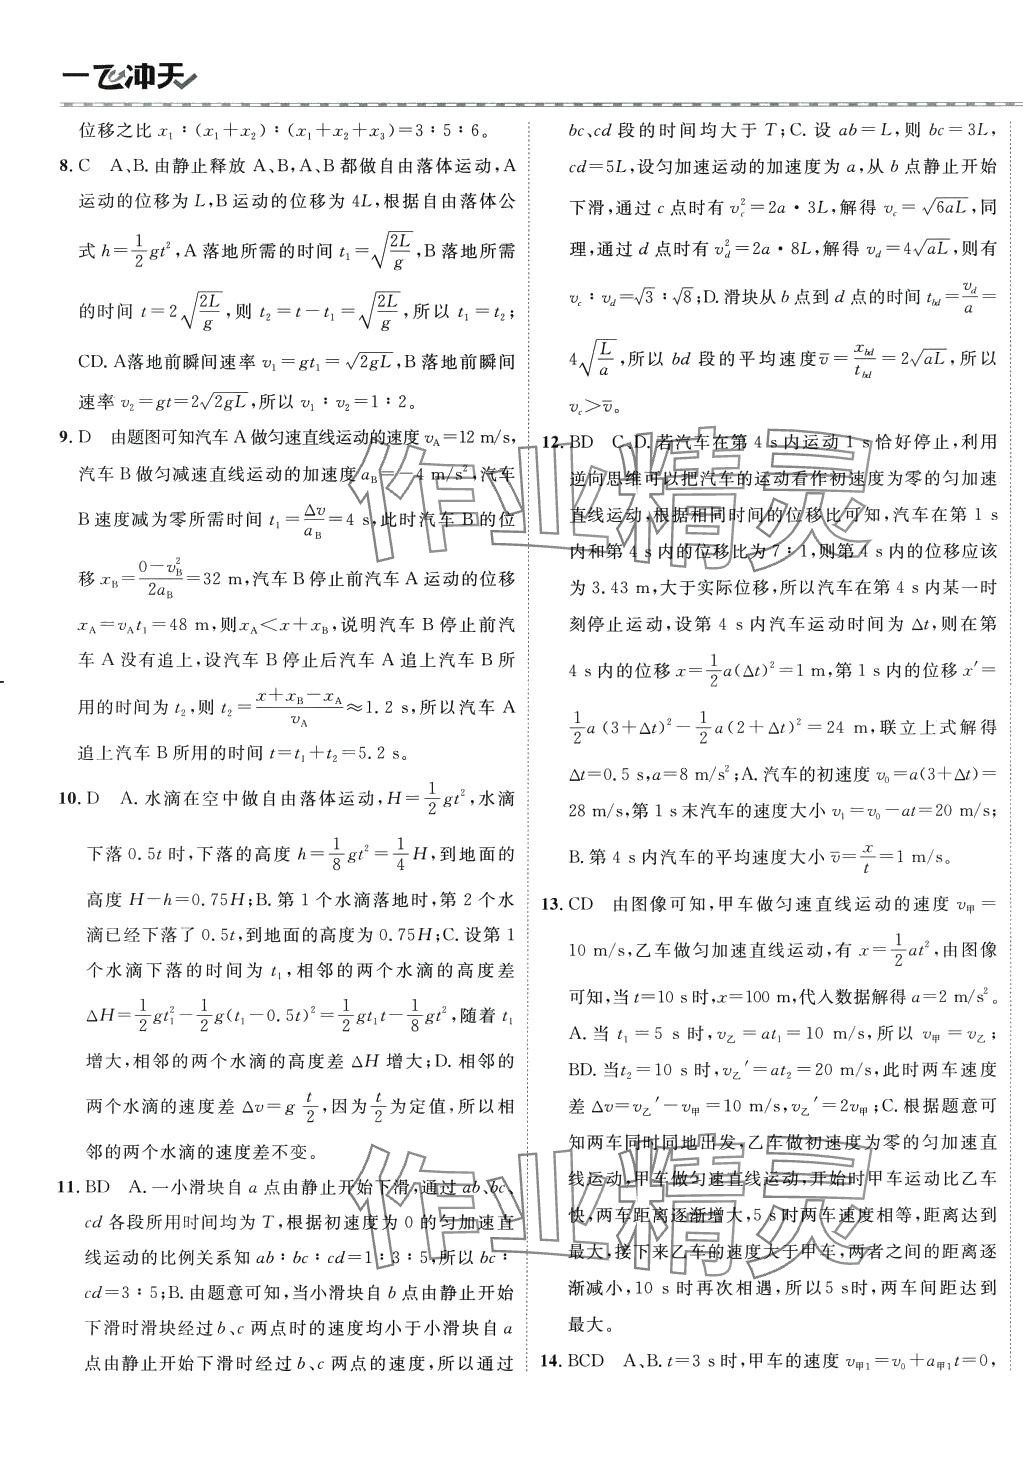 一飞冲天
位移之比 x₁∶(x₁+x₂)∶(x₁+x₂+x₃)=3∶5∶6。
8. C　A、B. 由静止释放 A、B,A、B 都做自由落体运动,A
运动的位移为 L,B 运动的位移为 4L,根据自由落体公
式 h=1/2 gt²,A 落地所需的时间 t₁=√(2L/g),B 落地所需
的时间 t=2√(2L/g),则 t₂=t-t₁=√(2L/g),所以 t₁=t₂;
CD. A落地前瞬间速率 v₁=gt₁=√(2gL),B 落地前瞬间
速率 v₂=gt=2√(2gL),所以 v₁∶v₂=1∶2。
9. D　由题图可知汽车 A 做匀速直线运动的速度 v_A=12 m/s,
汽车 B 做匀减速直线运动的加速度 a_B=-4 m/s²,汽车
B 速度减为零所需时间 t₁=Δv/a_B=4 s,此时汽车 B 的位
移 x_B=(0-v_B²)/(2a_B)=32 m,汽车 B 停止前汽车 A 运动的位移
x_A=v_At₁=48 m,则x_A<x+x_B,说明汽车 B 停止前汽
车 A 没有追上,设汽车 B 停止后汽车 A 追上汽车 B 所
用的时间为 t₂,则 t₂=(x+x_B-x_A)/v_A≈1.2 s,所以汽车 A
追上汽车 B 所用的时间 t=t₁+t₂=5.2 s。
10. D　A. 水滴在空中做自由落体运动,H=1/2 gt²,水滴
下落 0.5t 时,下落的高度 h=1/8 gt²=1/4 H,到地面的
高度 H-h=0.75H;B. 第 1 个水滴落地时,第 2 个水
滴已经下落了 0.5t,到地面的高度为 0.75H;C. 设第 1
个水滴下落的时间为 t₁,相邻的两个水滴的高度差
ΔH=1/2 gt₁²-1/2 g(t₁-0.5t)²=1/2 gt₁t-1/8 gt²,随着 t₁
增大,相邻的两个水滴的高度差 ΔH 增大;D. 相邻的
两个水滴的速度差 Δv=g t/2,因为 t/2 为定值,所以相
邻的两个水滴的速度差不变。
11. BD　A. 一小滑块自 a 点由静止开始下滑,通过 ab、bc、
cd 各段所用时间均为 T,根据初速度为 0 的匀加速直
线运动的比例关系知 ab∶bc∶cd=1∶3∶5,所以 bc∶
cd=3∶5;B. 由题意可知,当小滑块自 b 点由静止开始
下滑时滑块经过 b、c 两点时的速度均小于小滑块自 a
点由静止开始下滑时经过 b、c 两点的速度,所以通过
bc、cd 段的时间均大于 T;C. 设 ab=L,则 bc=3L,
cd=5L,设匀加速运动的加速度为 a,从 b 点静止开始
下滑,通过 c 点时有 v_c²=2a·3L,解得 v_c=√(6aL),同
理,通过 d 点时有 v_d²=2a·8L,解得 v_d=4√(aL),则有
v_c∶v_d=√3∶√8;D. 滑块从 b 点到 d 点的时间 t_bd=v_d/a=
4√(L/a),所以 bd 段的平均速度 v̄=x_bd/t_bd=2√(aL),所以
v_c>v̄。
12. BD　C、D. 若汽车在第 4 s 内运动 1 s 恰好停止,利用
逆向思维可以把汽车的运动看作初速度为零的匀加速
直线运动,根据相同时间的位移比可知,汽车在第 1 s
内和第 4 s 内的位移比为 7∶1,则第 4 s 内的位移应该
为 3.43 m,大于实际位移,所以汽车在第 4 s 内某一时
刻停止运动,设第 4 s 内汽车运动时间为 Δt,则在第
4 s 内的位移 x=1/2 a(Δt)²=1 m,第 1 s 内的位移 x′=
1/2 a(3+Δt)²-1/2 a(2+Δt)²=24 m,联立上式解得
Δt=0.5 s,a=8 m/s²;A. 汽车的初速度 v₀=a(3+Δt)=
28 m/s,第 1 s 末汽车的速度大小 v₁=v₀-at=20 m/s;
B. 第 4 s 内汽车的平均速度大小 v̄=x/t=1 m/s。
13. CD　由图像可知,甲车做匀速直线运动的速度 v甲=
10 m/s,乙车做匀加速直线运动,有 x=1/2 at²,由图像
可知,当 t=10 s 时,x=100 m,代入数据解得 a=2 m/s²。
A. 当 t₁=5 s 时,v乙=at₁=10 m/s,所以 v甲=v乙;
BD. 当t₂=10 s 时,v乙′=at₂=20 m/s,此时两车速度
差 Δv=v乙′-v甲=10 m/s,v乙′=2v甲;C. 根据题意可
知两车同时同地出发,乙车做初速度为零的匀加速直
线运动,甲车做匀速直线运动,开始时甲车运动比乙车
快,两车距离逐渐增大,5 s 时两车速度相等,距离达到
最大,接下来乙车的速度大于甲车,两者之间的距离逐
渐减小,10 s 时再次相遇,所以5 s时,两车间距达到
最大。
14. BCD　A、B. t=3 s 时,甲车的速度 v甲₁=v₀+a甲₁t=0,
作业精灵
作业精灵